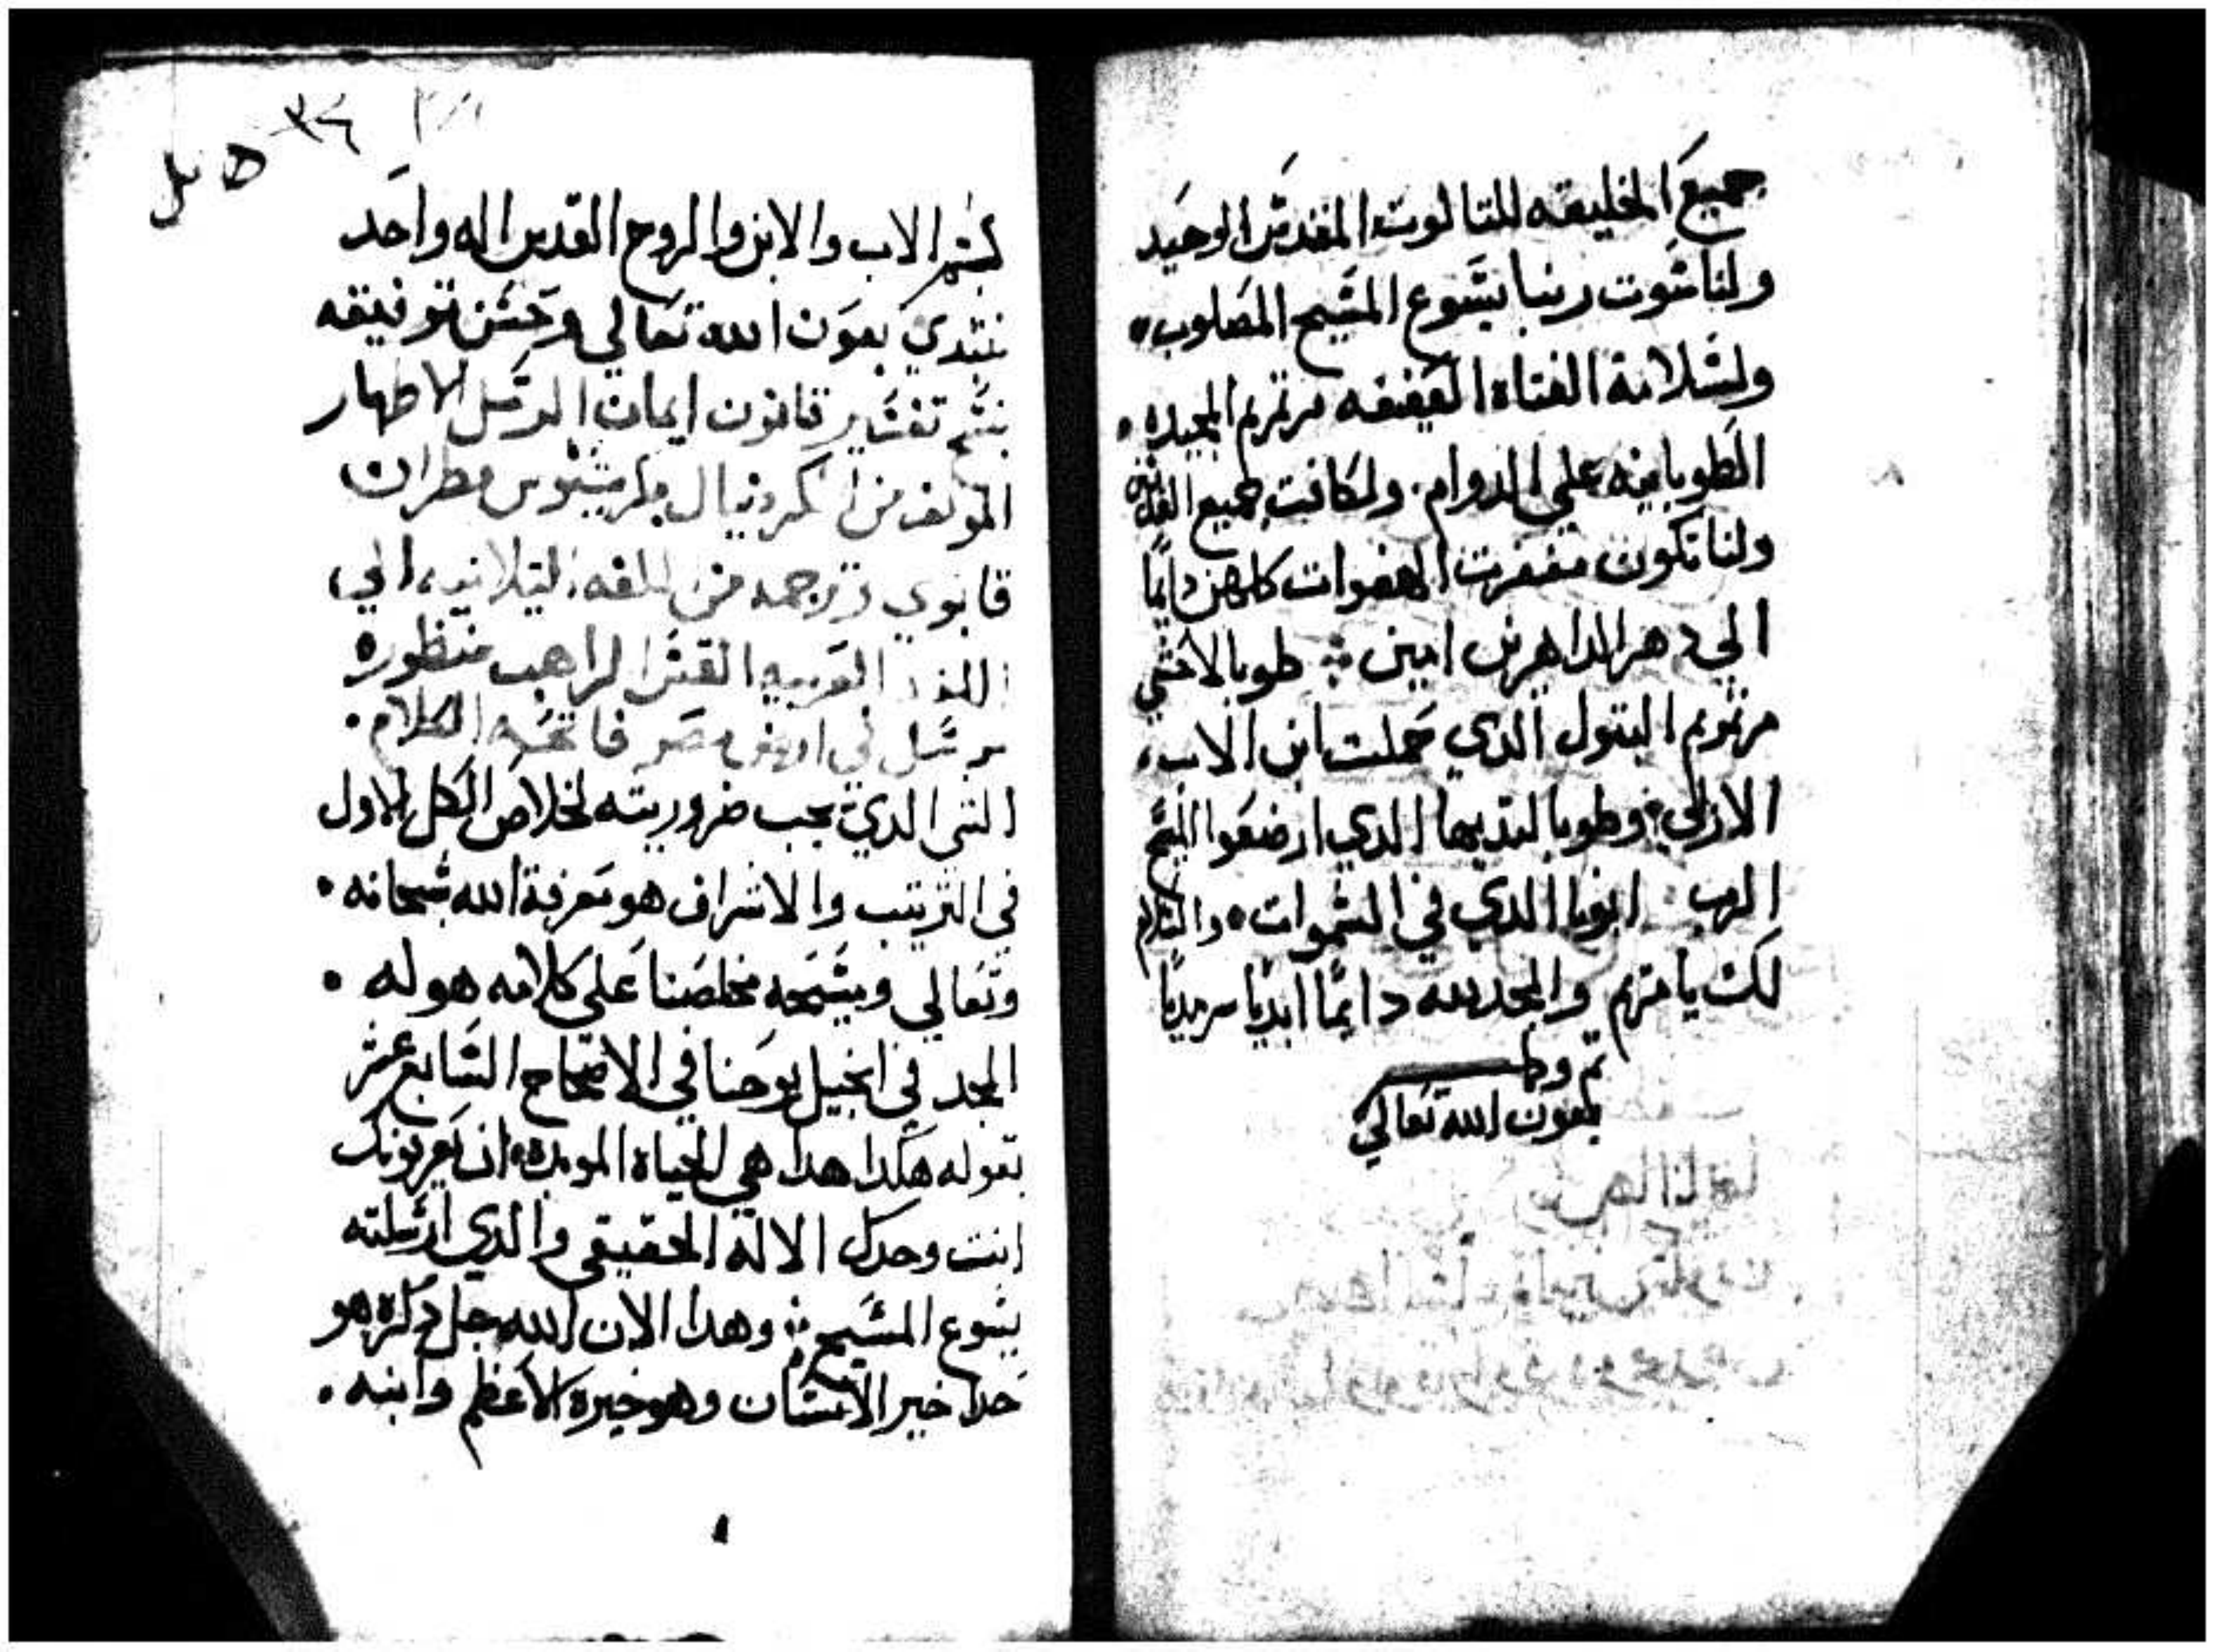 جميع الخليقه للتالوت المقدس الوحيد
ولناسوت ربنا يسوع المسيح المصلوب
ولسلامة الفتاه العفيفه مرتمريم المجيده
الطوبانيه علي الدوام. ولكافت جميع القديسين
ولنا تكون مغفرت الهفوات كلهن دايمًا
الي دهر الداهرين امين طوبا لاحشي
مرتمريم البتول الدي حملت ابن الاب
الازلي وطوبا لتديها الدي ارضعوا المسيح
الرب ابونا الدي في السموات والسلام
لكِ يا مريم والمجد لله دايمًا ابديًا سرمديًا
تم وكمل
بعون الله تعالي
٣٤
بسم الاب والابن والروح القدس اله واحد
نبتدي بعون الله تعالي وحسن توفيقه
بنسخ تفسير قانون ايمان الرسل الاطهار
المولف من الكردينال مطران
قابوي وترجمه من اللغه التيلانيه الي
اللغه العربيه القس الراهب منظوره
مرسل في ارض مصر فاتحة الكلام.
الشي الدي يجب ضروريته لخلاص الكل الاول
في الترتيب والاشراف هو معرفة الله سبحانه
وتعالي ويسمحه مخلصنا علي كلامه هو له
المجد في انجيل يوحنا في الاصحاح السابع عشر
بقوله هكدا هدا هي الحياه الموبده ان يعرفونك
انت وحدك الاله الحقيقي والدي ارسلته
يسوع المسيح وهدا الان الله جل دكره هو
حدا خير الانسان وهو خيره الاعظم وابنه.